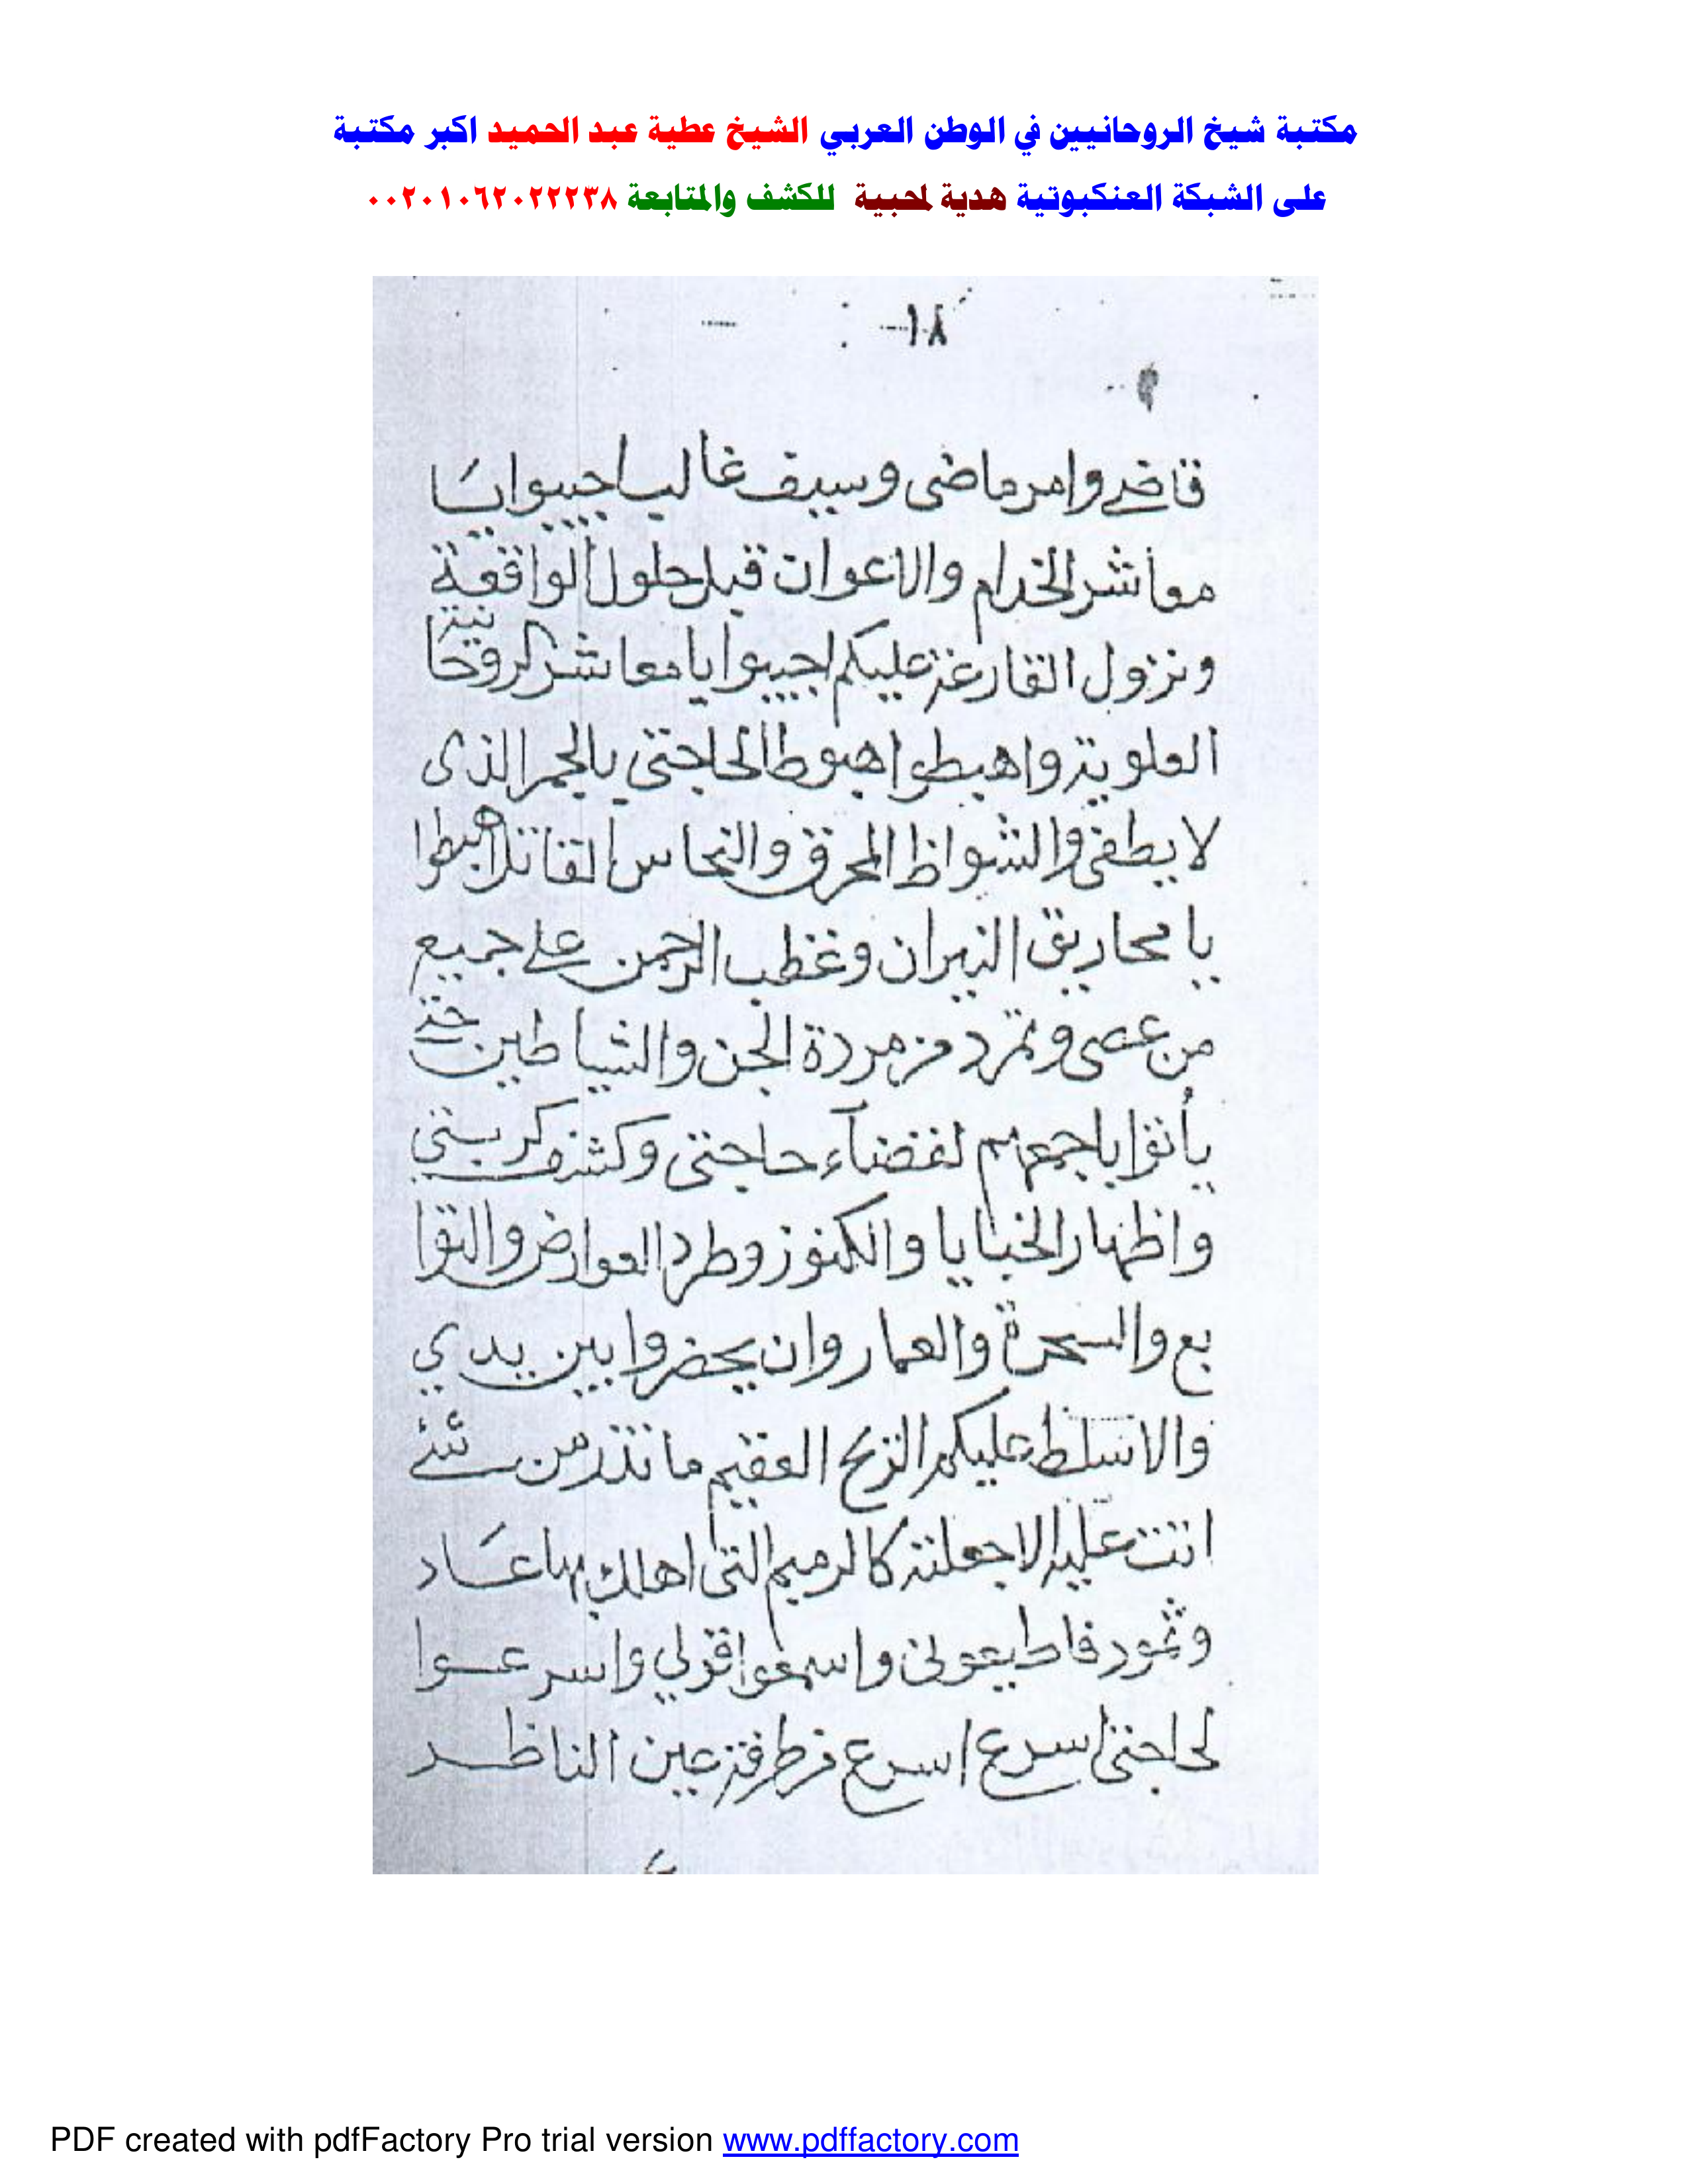 مكتبة شيخ الروحانيين في الوطن العربي الشيخ عطية عبد الحميد اكبر مكتبة
على الشبكة العنكبوتية هدية لمحبية للكشف والمتابعة ٠٠٢٠١٠٦٢٠٢٢٢٣٨
-١٨
وامر ماضى وسيف غالب اجيبوا يا
معاشر الخدام والاعوان قبل حلول الواقعة
ونزول القارعة عليكم اجيبوا يا معاشر الروحانية
العلوية واهبطوا هبوطا لحاجتى بالجمر الذى
لا يطفى والشواظ المحرق والنحاس القاتل اهبطوا
يا محاريق النيران وغظب الرحمن على جميع
من عصى وتمرد من مردة الجن والشياطين حتى
يأتوا باجمعهم لقضآء حاجتى وكشف كربتى
واظهار الخبايا والكنوز وطرد العوارض والتوا
بع والسحرة والعمار وان يحضروا بين يدي
والا نسلط عليكم الريح العقيم ما تذر من شئ
اتت عليه الا جعلته كالرميم التى اهلك بها عاد
وثمود فاطيعونى واسمعوا قولي واسرعوا
لحاجتى اسرع اسرع من طرفة عين الناظر
PDF created with pdfFactory Pro trial version www.pdffactory.com